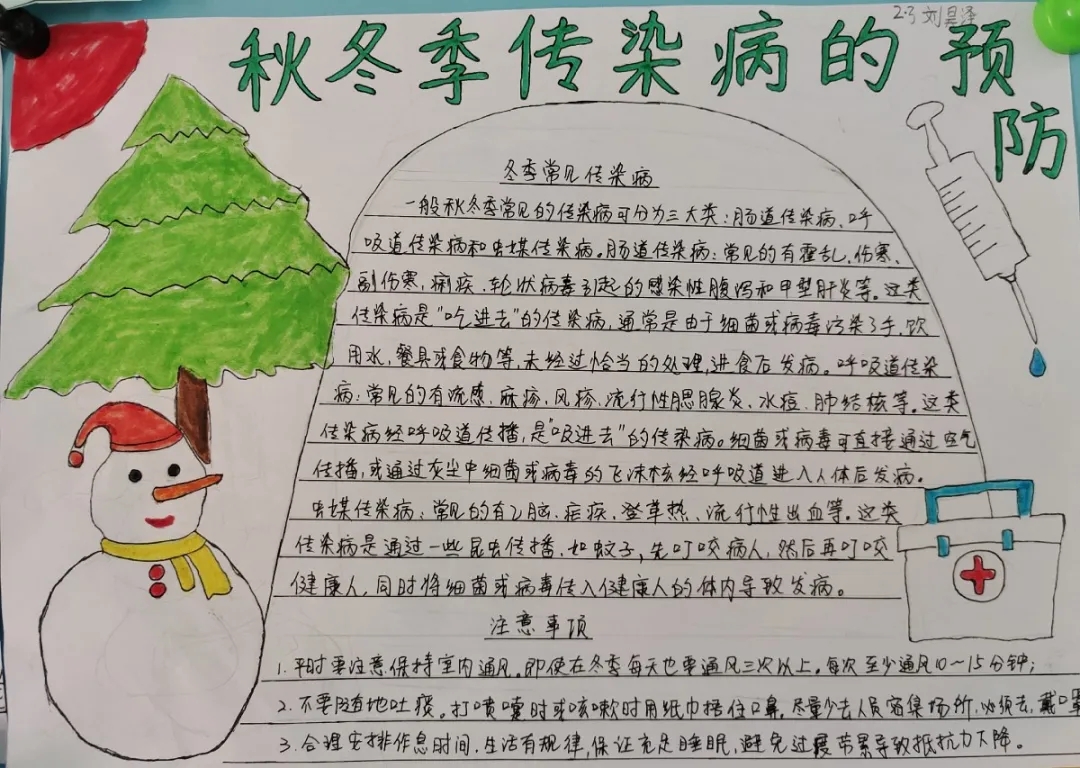 2.3 刘昊泽
秋冬季传染病的预
防
冬季常见传染病
一般秋冬季常见的传染病可分为三大类：肠道传染病、呼
吸道传染病和虫媒传染病。肠道传染病：常见的有霍乱、伤寒、
副伤寒、痢疾、轮状病毒引起的感染性腹泻和甲型肝炎等。这类
传染病是"吃进去"的传染病，通常是由于细菌或病毒污染了手、饮
用水、餐具或食物等，未经过恰当的处理，进食后发病。呼吸道传染
病：常见的有流感、麻疹、风疹、流行性腮腺炎、水痘、肺结核等。这类
传染病经呼吸道传播，是"吸进去"的传染病。细菌或病毒可直接通过空气
传播，或通过灰尘中细菌或病毒的飞沫核经呼吸道进入人体后发病。
虫媒传染病：常见的有乙脑、疟疾、登革热、流行性出血等。这类
传染病是通过一些昆虫传播，如蚊子，先叮咬病人，然后再叮咬
健康人，同时将细菌或病毒传入健康人的体内导致发病。
注意事项
1.平时要注意保持室内通风。即使在冬季每天也要通风三次以上。每次至少通风10～15分钟；
2.不要随地吐痰。打喷嚏时或咳嗽时用纸巾捂住口鼻，尽量少去人员密集场所，必须去，戴口罩
3.合理安排作息时间，生活有规律，保证充足睡眠，避免过度劳累导致抵抗力下降。